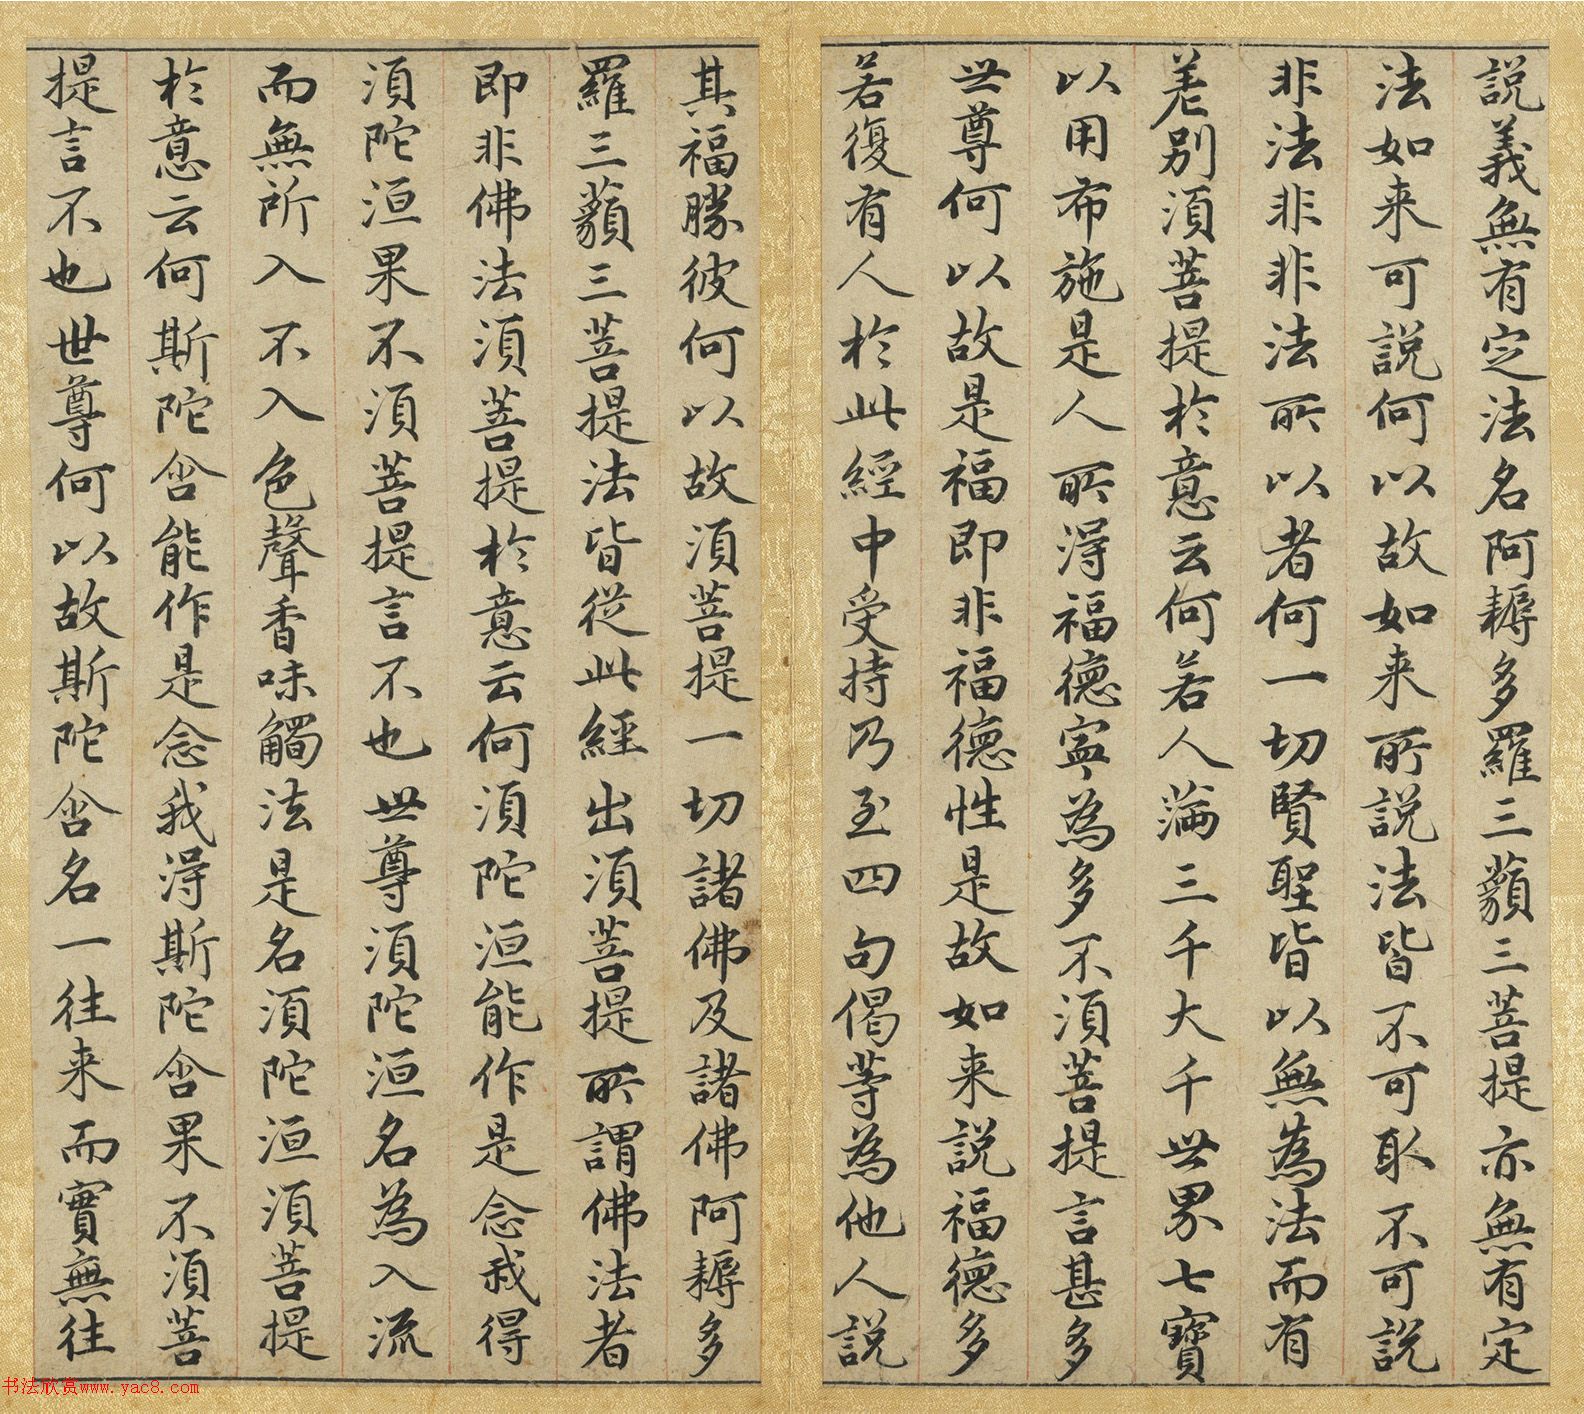 説義無有定法名阿耨多羅三藐三菩提亦無有定
法如来可説何以故如来所説法皆不可取不可説
非法非非法所以者何一切賢聖皆以無為法而有
差別須菩提於意云何若人滿三千大千世界七寶
以用布施是人所得福德寧為多不須菩提言甚多
世尊何以故是福德即非福德性是故如来説福德多
若復有人於此經中受持乃至四句偈等為他人説
其福勝彼何以故須菩提一切諸佛及諸佛阿耨多
羅三藐三菩提法皆從此經出須菩提所謂佛法者
即非佛法須菩提於意云何須陀洹能作是念我得
須陀洹果不須菩提言不也世尊須陀洹名為入流
而無所入不入色聲香味觸法是名須陀洹須菩提
於意云何斯陀含能作是念我得斯陀含果不須菩
提言不也世尊何以故斯陀含名一往来而實無往
书法欣赏www.yac8.com